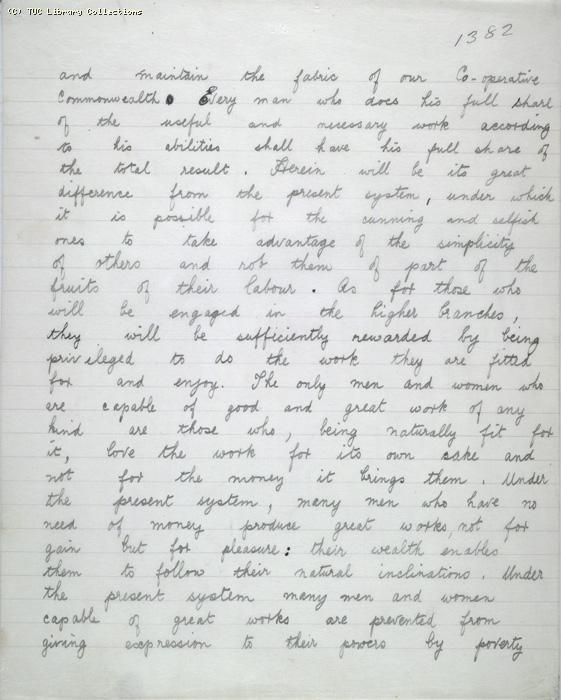 (C) TUC Library Collections
1382
and maintain the fabric of our Co-operative
Commonwealth. Every man who does his full share
of the useful and necessary work according
to his abilities shall have his full share of
the total result. Herein will be its great
difference from the present system, under which
it is possible for the cunning and selfish
ones to take advantage of the simplicity
of others and rob them of part of the
fruits of their labour. As for those who
will be engaged in the higher branches,
they will be sufficiently rewarded by being
privileged to do the work they are fitted
for and enjoy. The only men and women who
are capable of good and great work of any
kind are those who, being naturally fit for
it, love the work for its own sake and
not for the money it brings them. Under
the present system, many men who have no
need of money produce great works, not for
gain but for pleasure: their wealth enables
them to follow their natural inclinations. Under
the present system many men and women
capable of great works are prevented from
giving expression to their powers by poverty